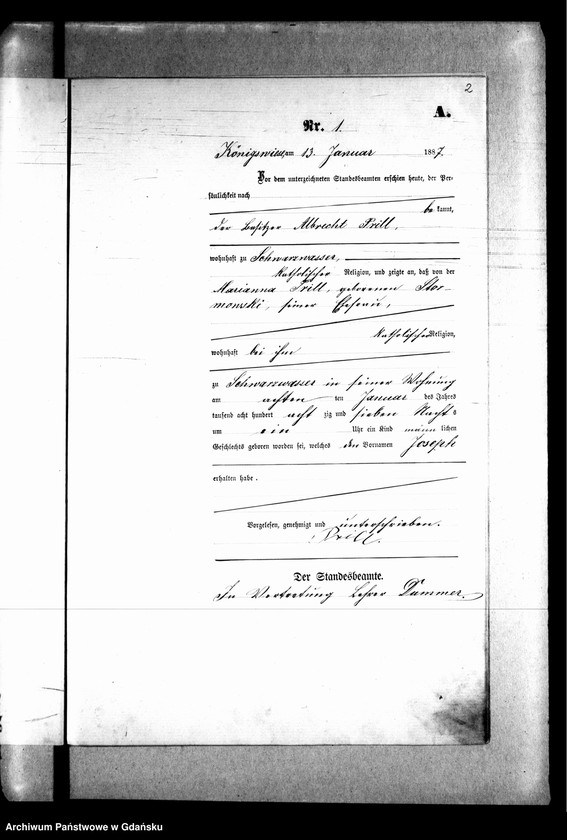 2
A.
Nr. 1.
Königswiese am 13. Januar 1887.
Vor dem unterzeichneten Standesbeamten erschien heute, der Per-
sönlichkeit nach
bekannt,
der Besitzer Albrecht Prill,
wohnhaft zu Schwarzwasser,
katholischer Religion, und zeigte an, daß von der
Marianna Prill, geborenen Stor-
mowski, seiner Ehefrau,
katholischer Religion,
wohnhaft bei ihm
zu Schwarzwasser in seiner Wohnung
am achten ten Januar des Jahres
tausend acht hundert acht zig und sieben Nachts
um ein Uhr ein Kind männ lichen
Geschlechts geboren worden sei, welches den Vornamen Joseph
erhalten habe.
Vorgelesen, genehmigt und unterschrieben.
Prill.
Der Standesbeamte.
In Vertretung Lehrer Dummer.
Archiwum Państwowe w Gdańsku